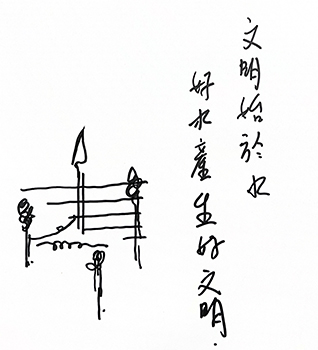 文明始於水
好水產生好文明.